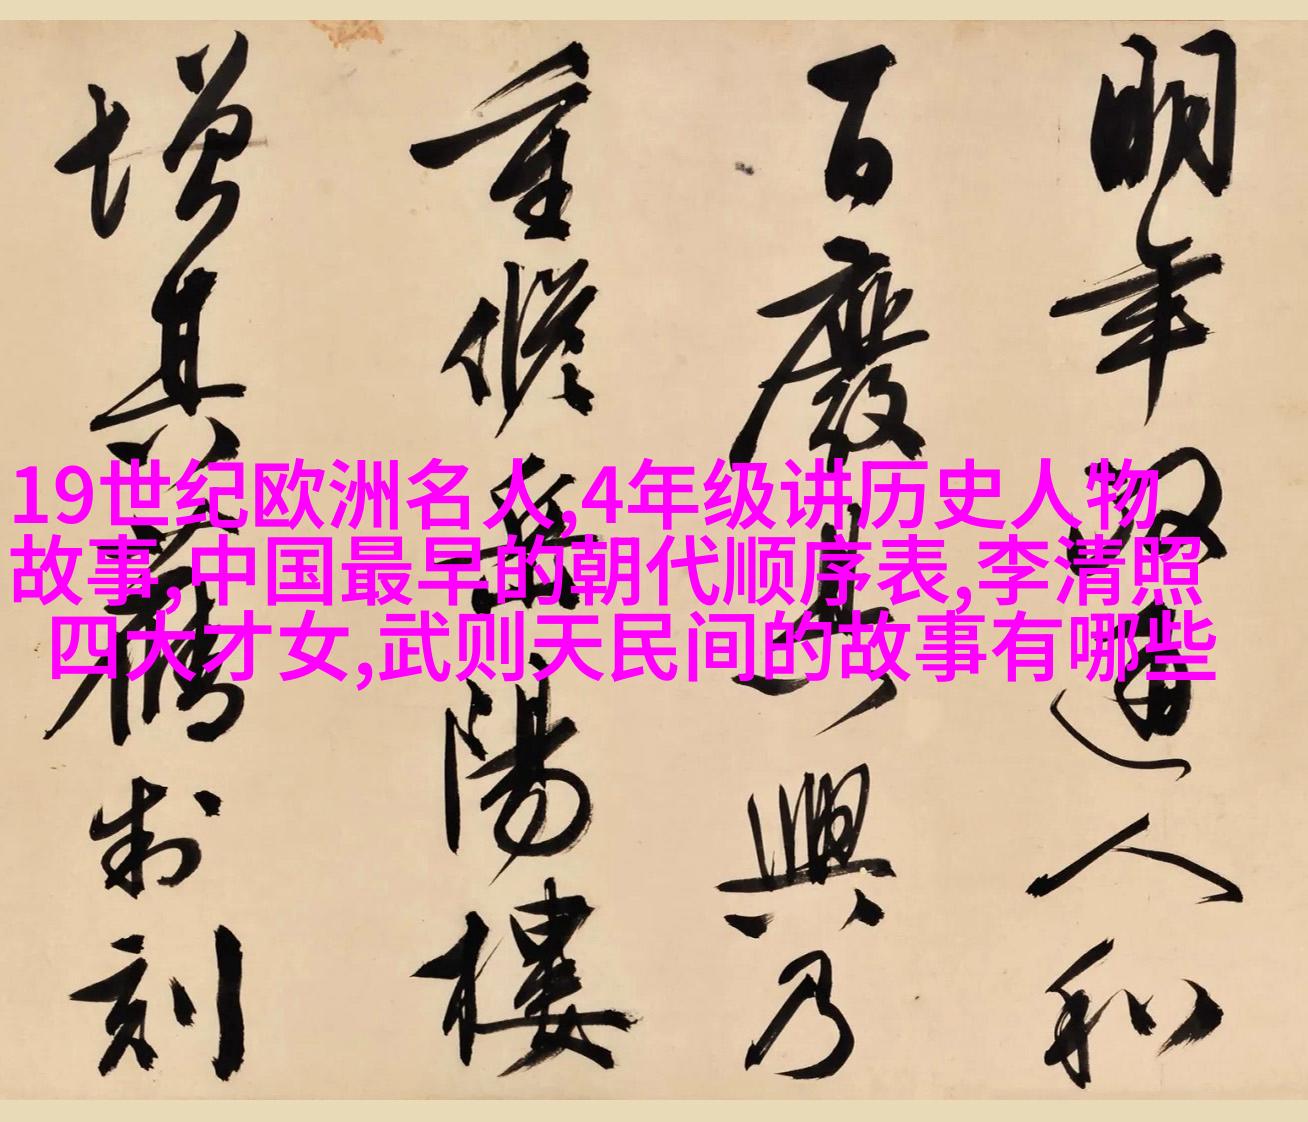 明年政通人和
百廢具興乃
重脩岳陽樓
增其舊制刻
19世纪欧洲名人,4年级讲历史人物
故事,中国最早的朝代顺序表,李清照
四大才女,武则天民间的故事有哪些